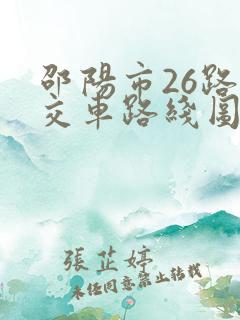 邵陽市26路
交車路綫圖
張芷婷
未經同意禁止轉載